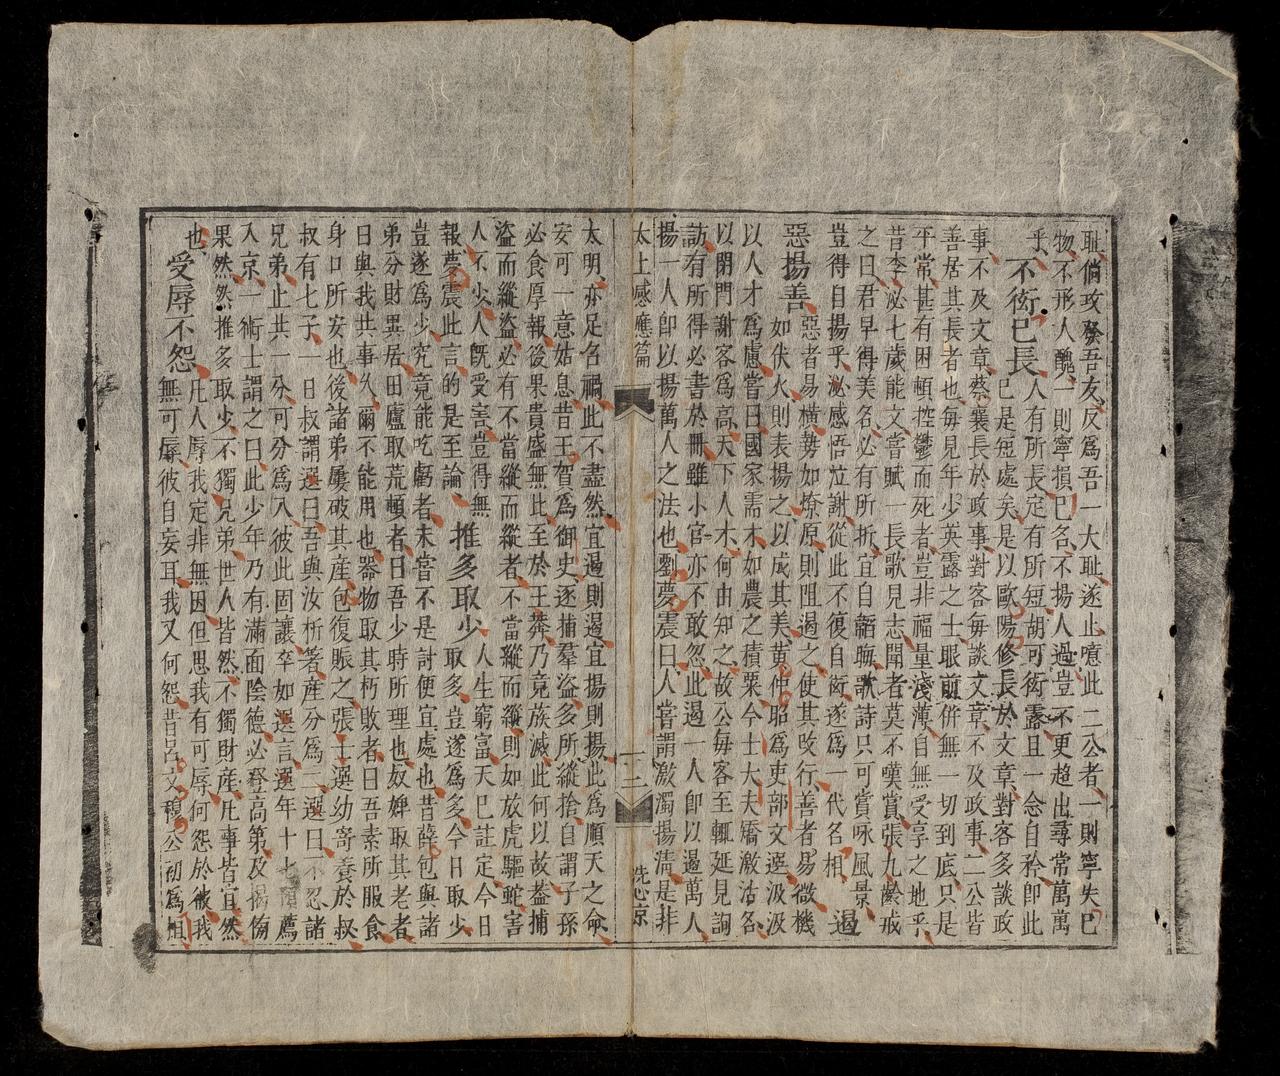 耻倘攻發吾友反爲吾一大耻遂止噫此二公者一則寧失己
物不形人醜一則寧損己名不揚人過豈不更超出尋常萬萬
乎 不衒己長 人有所長定有所短胡可衒露且一念自矜卽此
己是短處矣是以歐陽修長於文章對客多談政
事不及文章蔡襄長於政事對客每談文章不及政事二公皆
善居其長者也每見年少英露之士眼前併無一切到底只是
平常甚有困頓控鬱而死者豈非福量淺薄自無受享之地乎
昔李泌七歲能文嘗賦一長歌見志聞者莫不嘆賞張九齡戒
之曰君早得美名必有所折宜自韜晦歌詩只可賞咏風景
豈得自揚乎泌感悟泣謝從此不復自衒遂爲一代名相 遏
惡揚善 惡者易橫勢如燎原則阻遏之使其攺行善者易微機
如伏火則表揚之以成其美黃仲昭爲吏部文選汲汲
以人才爲慮嘗曰國家需木如農之積粟今士大夫矯激沽名
以閉門謝客爲高天下人木何由知之故公每客至輒延見詢
訪有所得必書於冊雖小官亦不敢忽此遏一人卽以遏萬人
揚一人卽以揚萬人之法也劉夢震曰人嘗謂激濁揚淸是非
太上感應篇 十三
太明亦足召禍此不盡然宜遏則遏宜揚則揚此爲順天之命
安可一意姑息昔王賀爲御史逐捕羣盜多所縱捨自謂子孫
必食厚報後果貴盛無比至於王莽乃竟族滅此何以故葢捕
盜而縱盜必有不當縱而縱者不當縱而縱則如放虎驅蛇害
人不少人旣受害豈得無 推多取少 人生窮富天已註定今日
報夢震此言的是至論 取多豈遂爲多今日取少
豈遂爲少究竟能吃虧者未嘗不是討便宜處也昔薛包與諸
弟分財異居田廬取荒頓者曰吾少時所理也奴婢取其老者
曰與我共事久爾不能用也器物取其朽敗者曰吾素所服食
身口所安也後諸弟屢破其産包復賑之張士選幼寄養於叔
叔有七子一日叔謂選曰吾與汝析箸産分爲二選曰不忍諸
兄弟止共一分可分爲八彼此固讓卒如選言選年十七薦
入京一術士謂之曰此少年乃有滿面陰德必登高第及揭傍
果然然推多取少不獨兄弟世人皆然不獨財産凡事皆宜然
也 受辱不怨 凡人辱我定非無因但思我有可辱何怨於彼我
無可辱彼自妄耳我又何怨昔呂文穆公初爲相